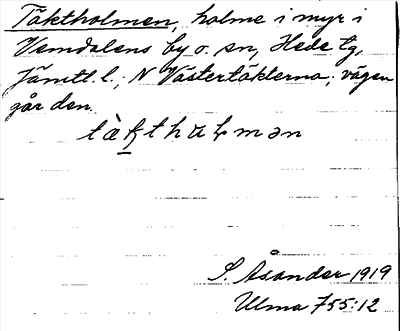 Täktholmen, holme i myr i
Vemdalens by o. sn, Hede tg,
Jämtl. l.; N Västertäkterna; vägen
går den.
tàkthɷlmən
S. Åsander 1919
Ulma 755:12